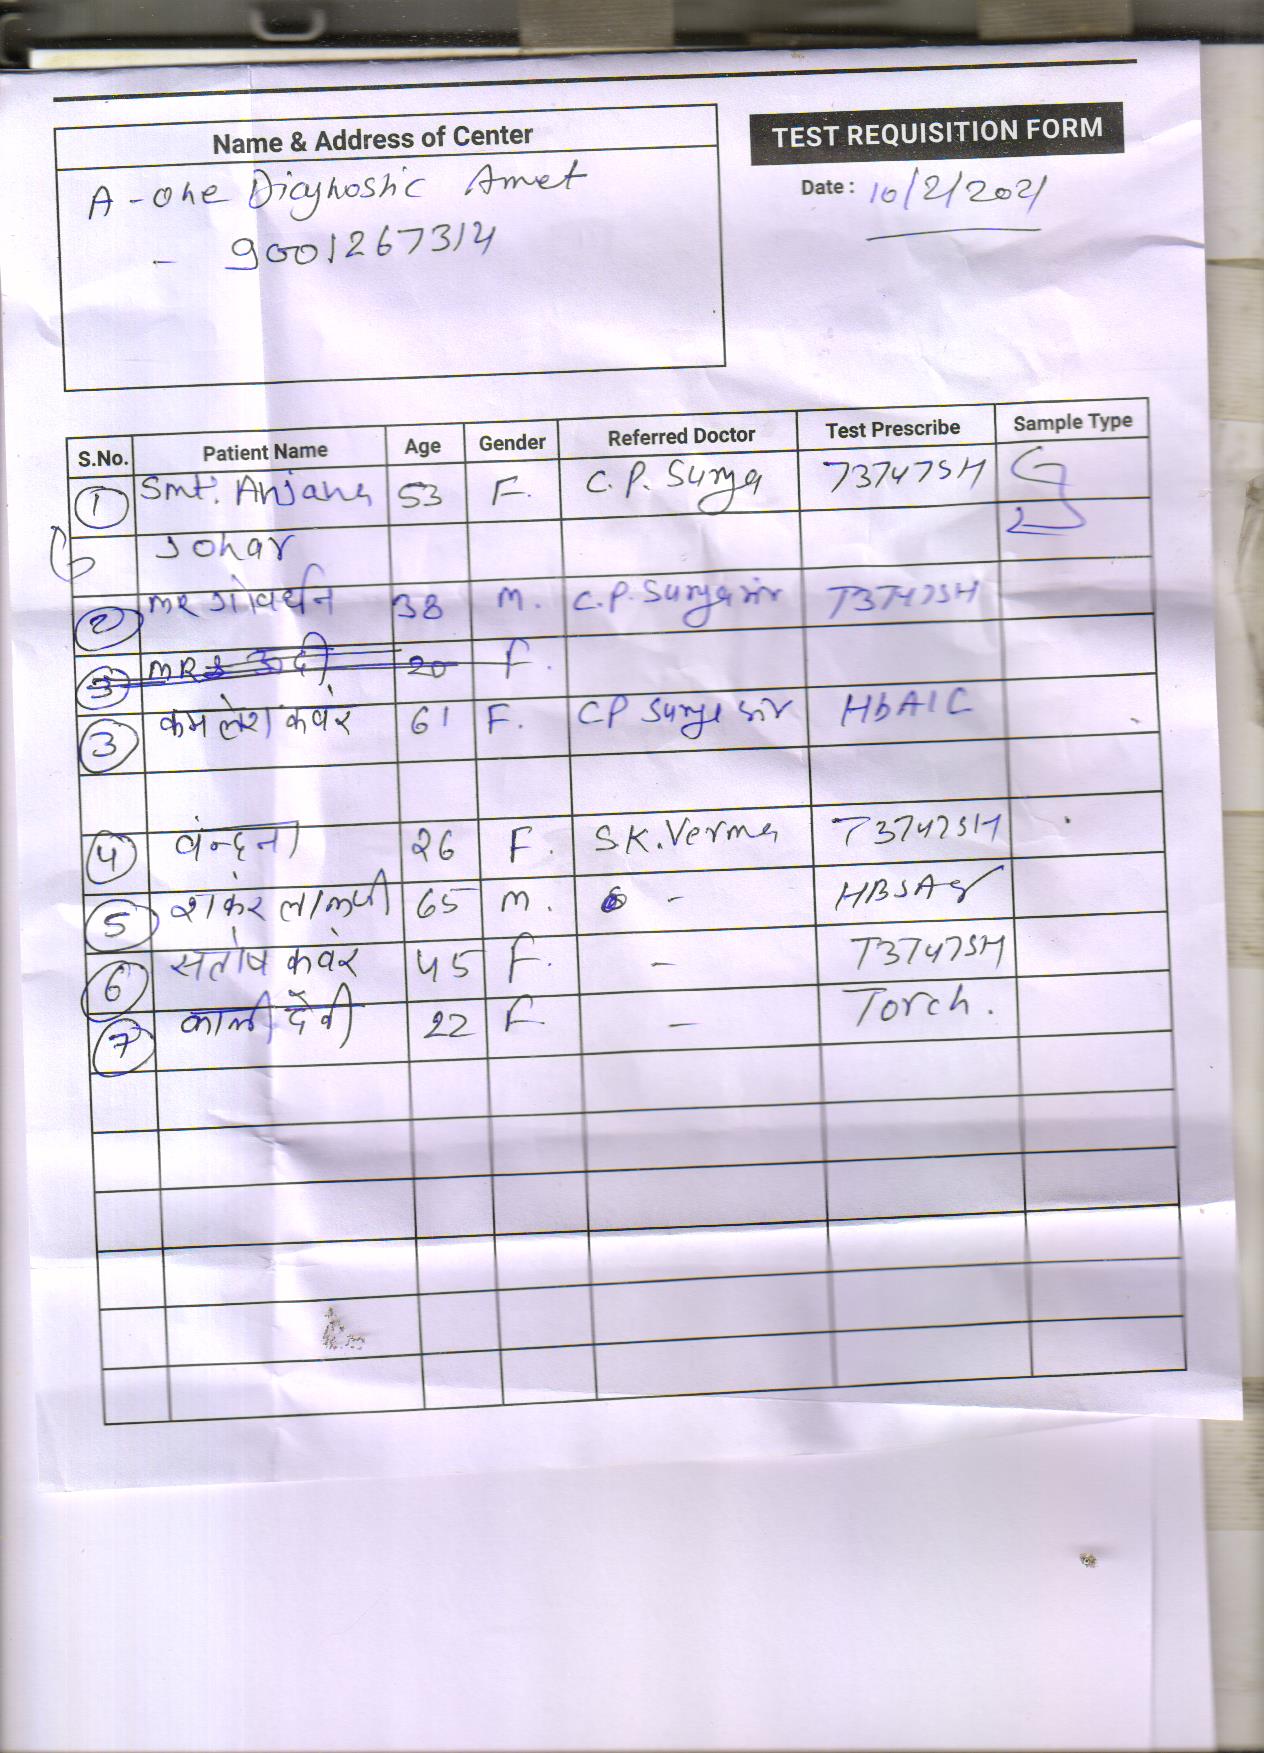 Name & Address of Center
TEST REQUISITION FORM
A-one Diagnostic Amet
Date: 10/2/2021
- 9001267314
S.No. Patient Name Age Gender Referred Doctor Test Prescribe Sample Type
1 Smt. Anjana 53 F. C.P. Surya T3T4TSH
Johar
2 MR गोवर्धन 38 M. C.P. Surya sir T3T4TSH
3 MRS उदी 20 F.
3 कमलेश कवंर 61 F. CP Surya sir HbA1C
4 वन्दना 26 F. S.K. Verma T3T4TSH
5 शंकर लालजी 65 M. - HBSAg
6 सतोष कवंर 45 F. - T3T4TSH
7 काली देवी 22 F - Torch.